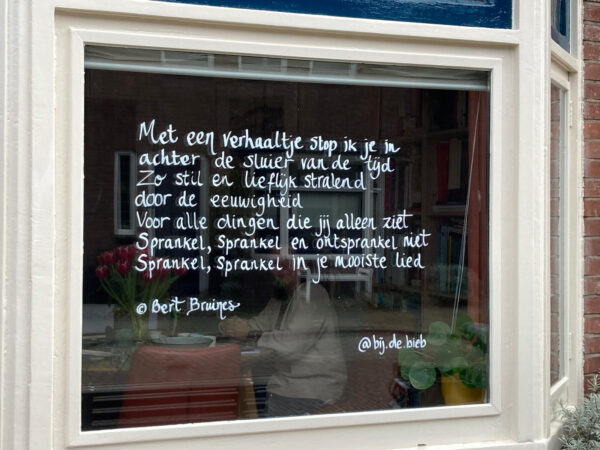 Met een verhaaltje stop ik je in
achter de sluier van de tijd
Zo stil en lieflijk stralend
door de eeuwigheid
Voor alle dingen die jij alleen ziet
Sprankel, sprankel en ontsprankel niet
Sprankel, sprankel in je mooiste lied
© Bert Bruines
@bij.de.bieb